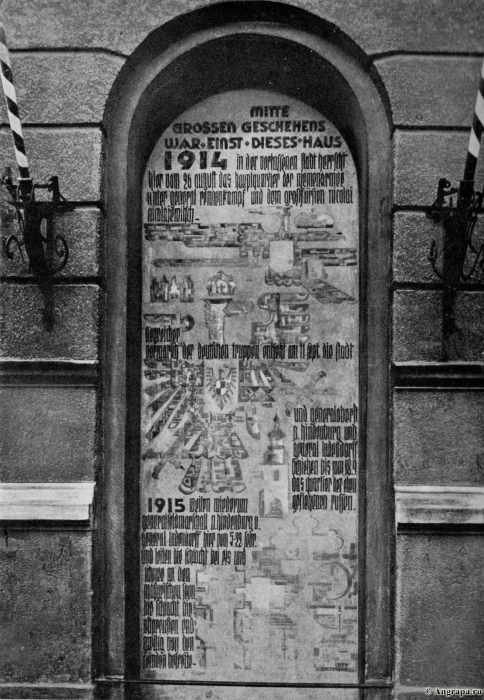 MITTE
GROSSEN GESCHEHENS
WAR · EINST · DIESES · HAUS
1914 in der verlassenen stadt herrscht
hier vom 26 august das hauptquartier der njemenarmee
unter general rennenkampf und dem großfürsten nicolai
siegreicher
vormarsch der deutschen truppen entsetzt am 11 sept. die stadt
und generaloberst
v. hindenburg und
general ludendorff
beziehen bis zum 18.9
das quartier der eben
geflohenen russen.
1915 weilen wiederum
generalfeldmarschall v. hindenburg u.
general ludendorff hier vom
und leiten die
schnee in den
die
von den
© Angrapa.ru